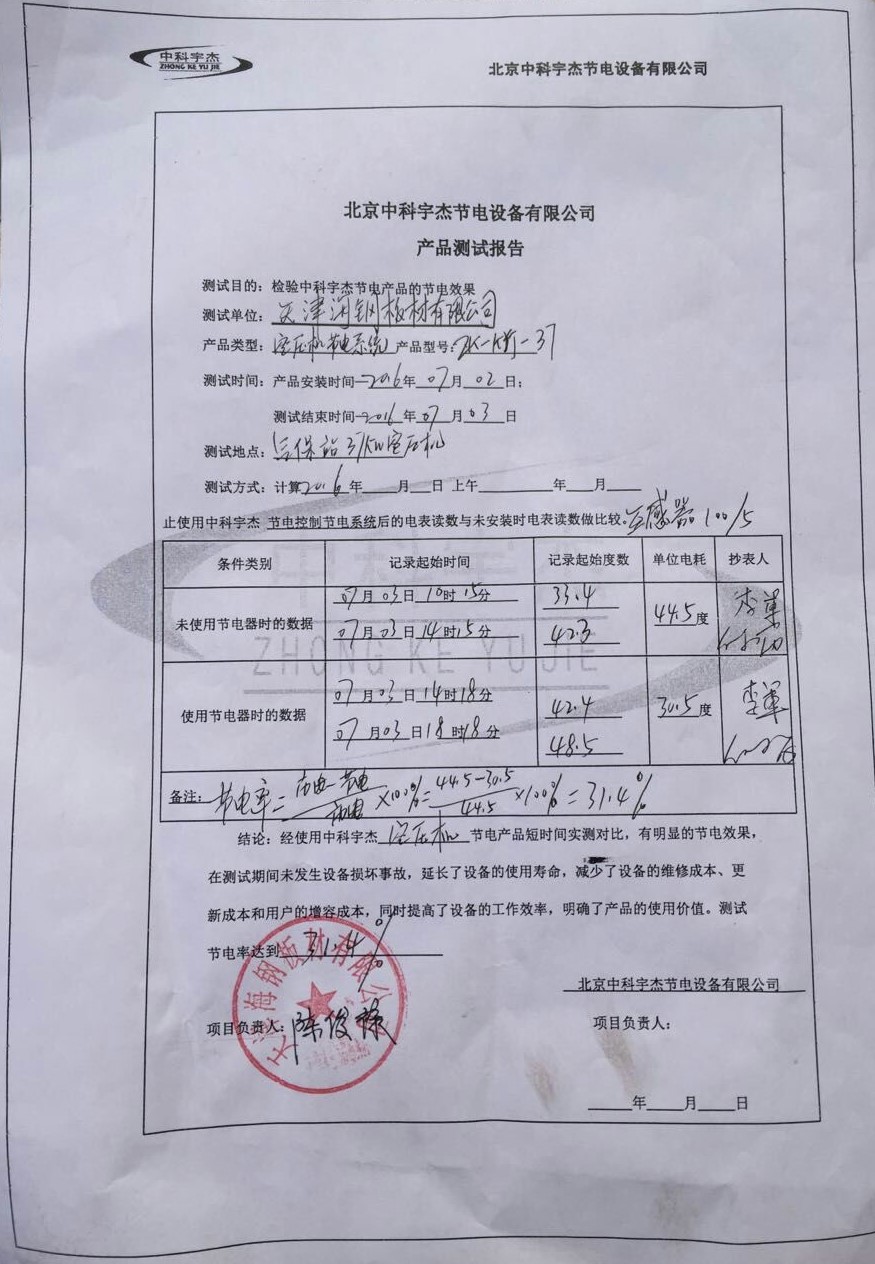 中科宇杰
ZHONG KE YU JIE
北京中科宇杰节电设备有限公司
北京中科宇杰节电设备有限公司
产品测试报告
测试目的：检验中科宇杰节电产品的节电效果
测试单位：天津海钢板材有限公司
产品类型：空压机节电系统 产品型号：ZK-KYJ-37
测试时间：产品安装时间—2016年07月02日；
测试结束时间—2016年07月03日
测试地点：37KW空压机
测试方式：计算2016年 月 日 上午 年 月
止使用中科宇杰 节电控制节电系统后的电表读数与未安装时电表读数做比较。互感器100/5
条件类别 记录起始时间 记录起始度数 单位电耗 抄表人
未使用节电器时的数据 07月03日10时15分 33.4 44.5度 李军
07月03日14时15分 42.3
使用节电器时的数据 07月03日14时18分 42.4 30.5度 李军
07月03日18时18分 48.5
中科宇杰
ZHONG KE YU JIE
备注：节电率=市电-节电/市电×100%=44.5-30.5/44.5×100%=31.4%
结论：经使用中科宇杰 空压机 节电产品短时间实测对比，有明显的节电效果，
在测试期间未发生设备损坏事故，延长了设备的使用寿命，减少了设备的维修成本、更
新成本和用户的增容成本，同时提高了设备的工作效率，明确了产品的使用价值。测试
节电率达到 31.4%
天津海钢板材有限公司
北京中科宇杰节电设备有限公司
项目负责人：陈俊禄
项目负责人：
年 月 日